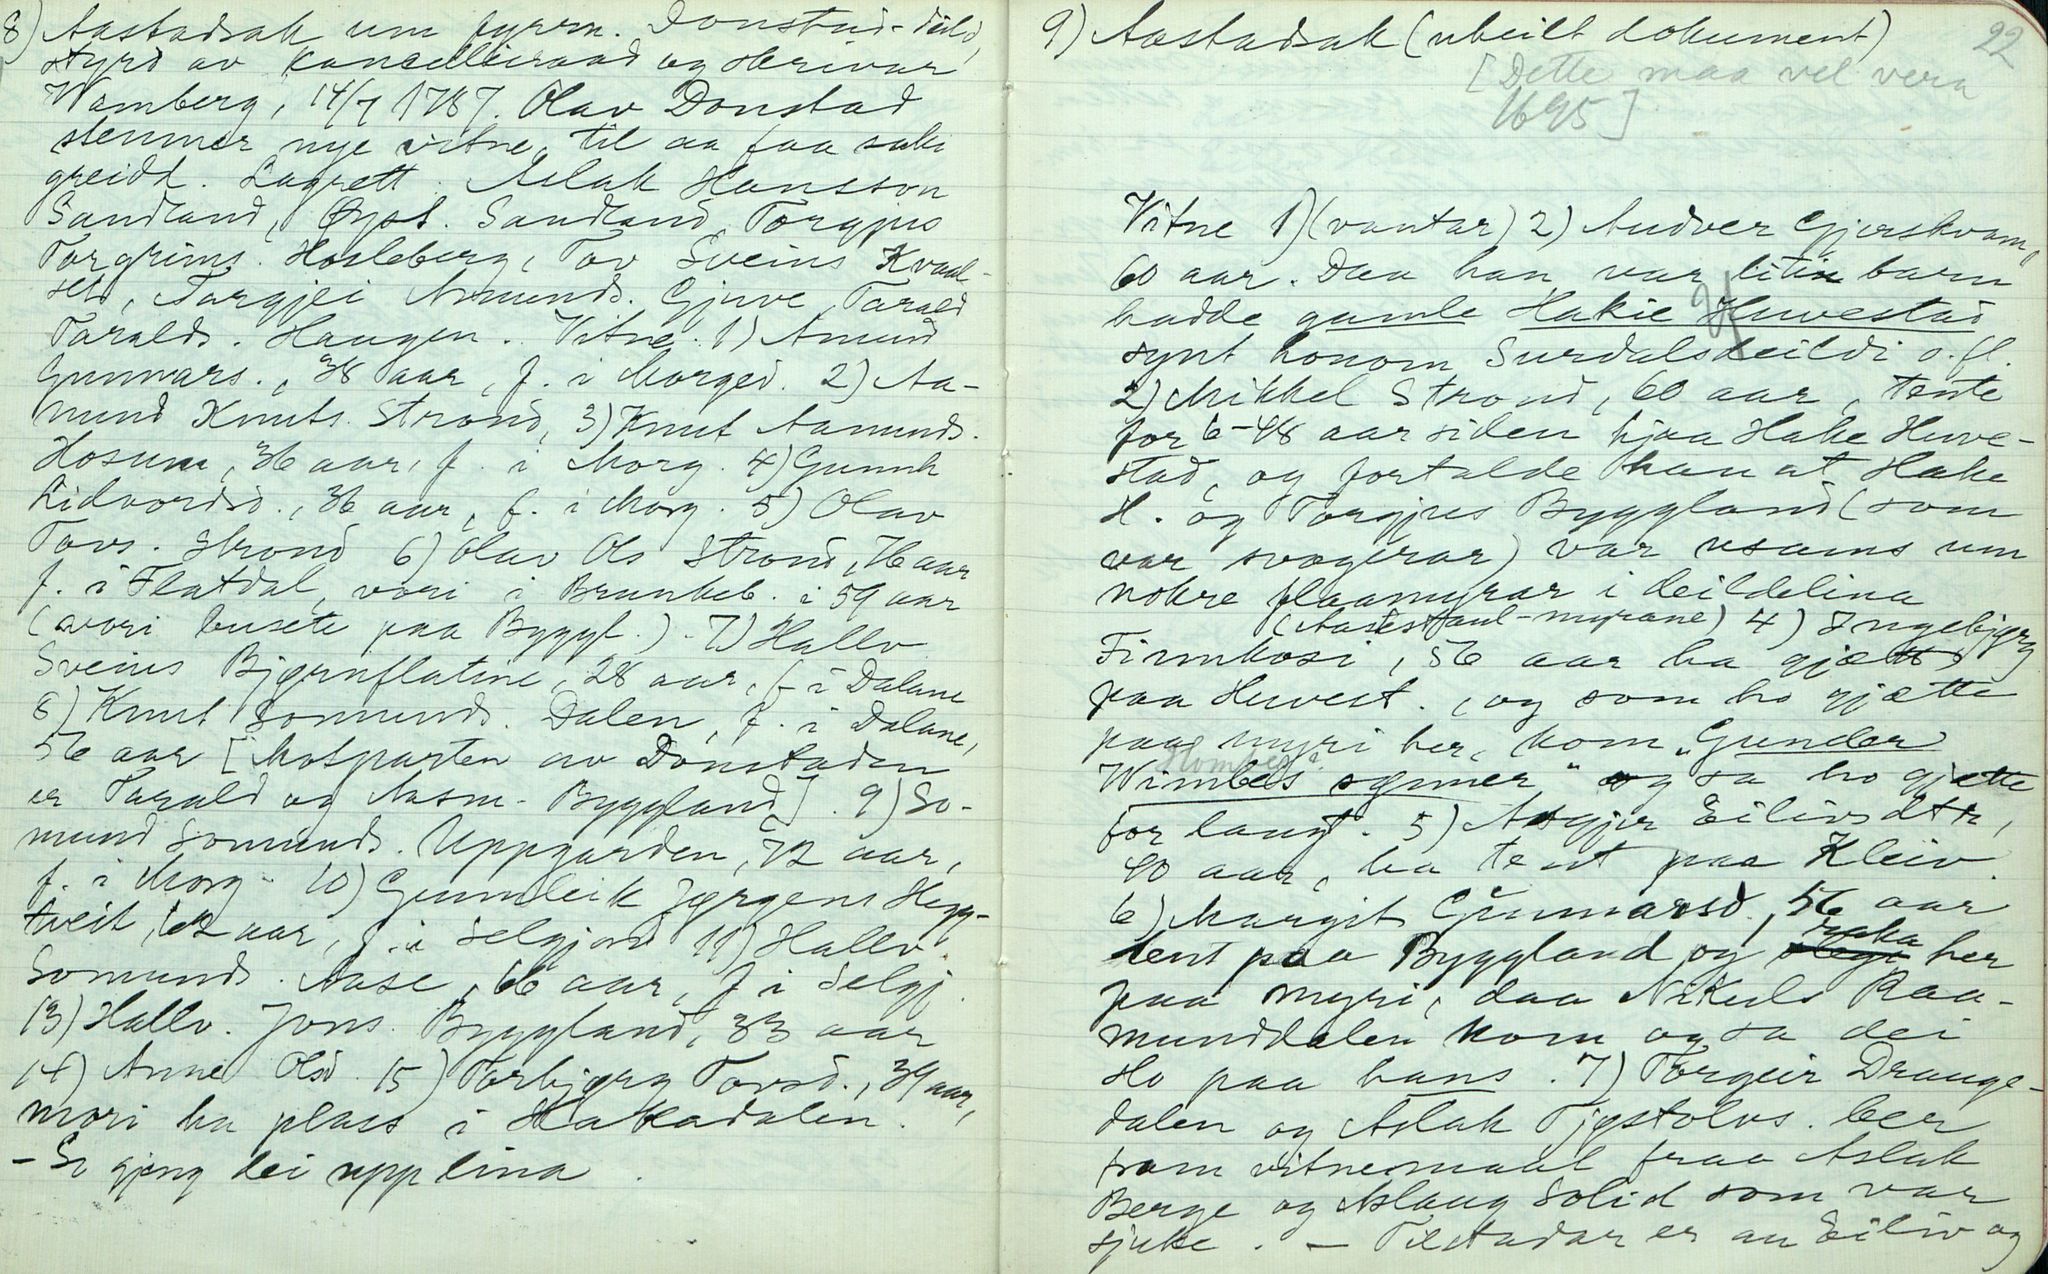 8) Aastadsak um fyrrn. Donstad-deild,
styrd av kancelleiraad og skrivar
Wamberg, 14/7 1787. Olav Donstad
stemner nye vitne, til aa faa saki
greidd. Lagrett. Aslak Hansson
Sandland, Øyst. Sandland, Torgjus
Torgrims. Hosleberg, Tov Sveins Kvaal-
seto, Targjei Asmunds. Gjuve, Tarald
Taralds. Haugen. Vitne. 1) Amund
Gunnars., 38 aar, f. i Morged. 2) Aa-
mund Knuts. Strond, 3) Knut Aamunds.
Hosum, 36 aar, f. i Morg. 4) Gunnh
Lidvordsd., 36 aar, f. i Morg. 5) Olav
Tovs. Strond 6) Olav Ols Strond, 76 aar
f. i Flatdal, vori i Brunkeb. i 59 aar
(vori busete paa Byggl.). 7) Hallv.
Sveins Bjørnflatine, 28 aar, f. i Dalane
8) Knut Somunds. Dalen, f. i Dalane,
56 aar [Motparten av Donstaden
er Tarald og Aasm. Byggland]. 9) So-
mund Somunds. Uppgarden, 72 aar,
f. i Morg. 10) Gunnleik Jørgens Hegg-
tveit, 62 aar, f. i Selgjord 11) Hallv.
Somunds. Aase, 66 aar, f i Selgj.
13) Hallv. Jons. Byggland, 33 aar
14) Anne Olsd. 15) Torbjørg Tovsd., 39 aar,
mori ha plass i Hakadalen.
- So gjeng dei upp lina.
9) Aastadsak (ubeilt dokument) 22
[Dette maa vel vera
1695]
Vitne 1) (vantar) 2) Audver Gjerskvam,
60 aar. Daa han var liten barn
hadde gamle Hakie Huvestad
synt honom Surdalsdeildi o. fl.
2) Mikkel Strond, 60 aar, tente
for 6-48 aar siden hjaa Hake Huve-
stad, og fortalde han at Hake
H. og Torgjus Byggland (som
var svogerar) var usams um
nokre flaamyrar i deildelina
(Aasestaul-myrane) 4) Ingebjørg
Finnkosi, 56 aar ha gjætt
paa Huvest., og som ho gjætte
paa myri her, kom "Gunder
Wimbes sønner" og sa ho gjætte
for langt. 5) Asgjer Eilivsdttr,
40 aar, ha tent paa Kleiv.
6) Margit Gunnarsd., 56 aar
tent paa Byggland og raka her
paa myri, daa Nikuls Raa-
munddalen kom og sa dei
slo paa hans. 7) Torgeir Drange-
dalen og Aslak Tjøstolvs. ber
fram vitnemaal fraa Aslak
Berge og Aslaug Solid som var
sjuke. - Tilstadar er au Eiliv og